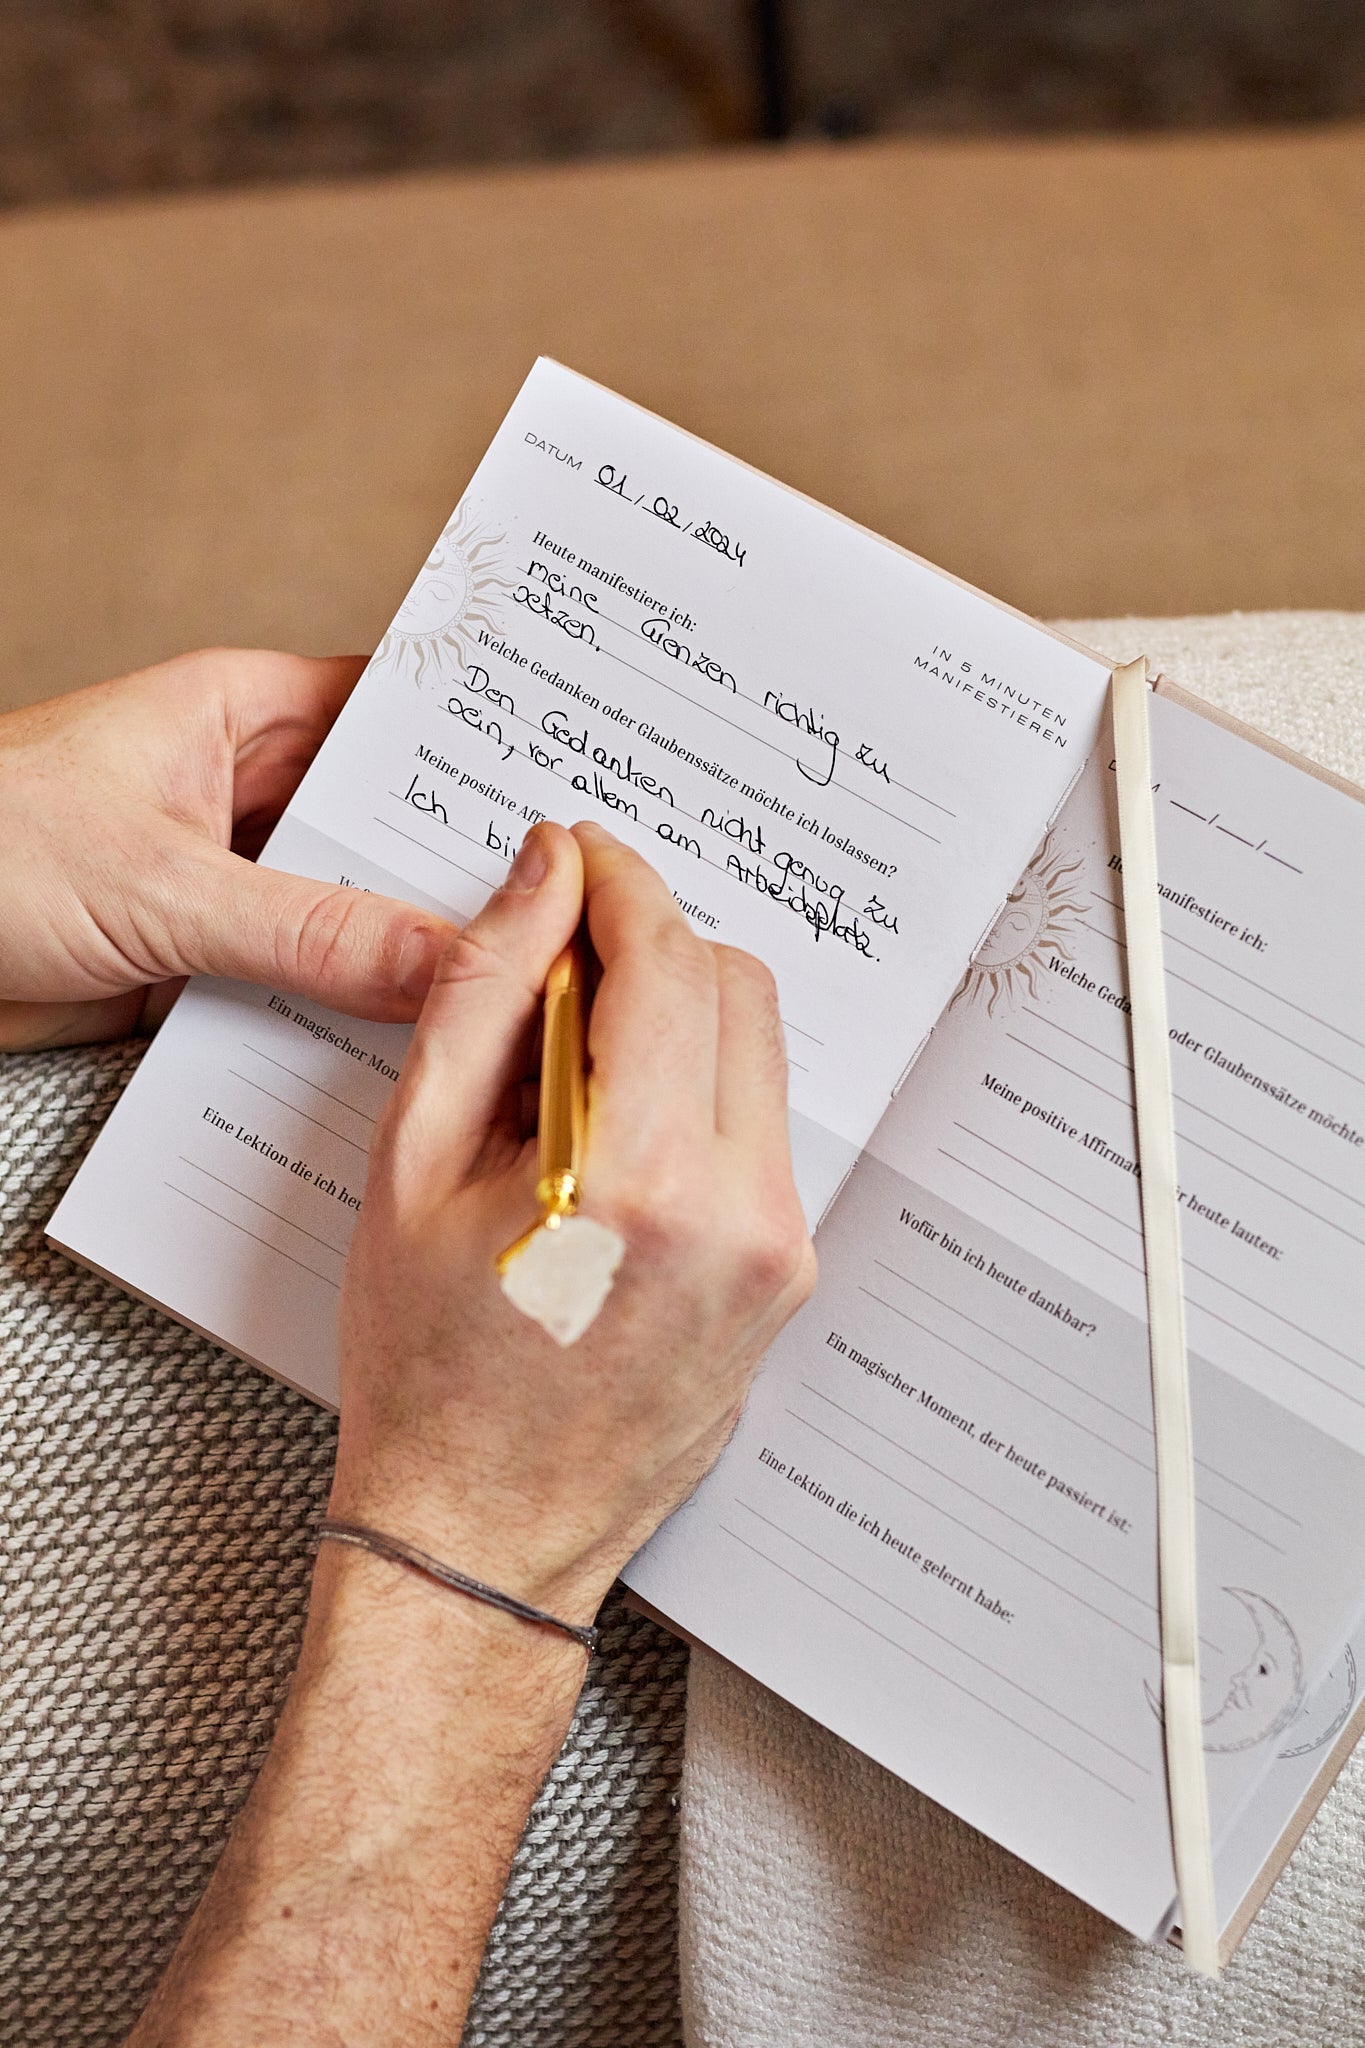 DATUM 01/02/2024
Heute manifestiere ich:
meine Grenzen richtig zu
setzen.
Welche Gedanken oder Glaubenssätze möchte ich loslassen?
Den Gedanken nicht genug zu
sein, vor allem am Arbeitsplatz.
Meine positive Affi lauten:
Ich bin
Ein magischer Mon
Eine Lektion die ich heu
IN 5 MINUTEN
MANIFESTIEREN
_/_/_
manifestiere ich:
Welche Geda oder Glaubenssätze möchte
Meine positive Affirmat r heute lauten:
Wofür bin ich heute dankbar?
Ein magischer Moment, der heute passiert ist:
Eine Lektion die ich heute gelernt habe: